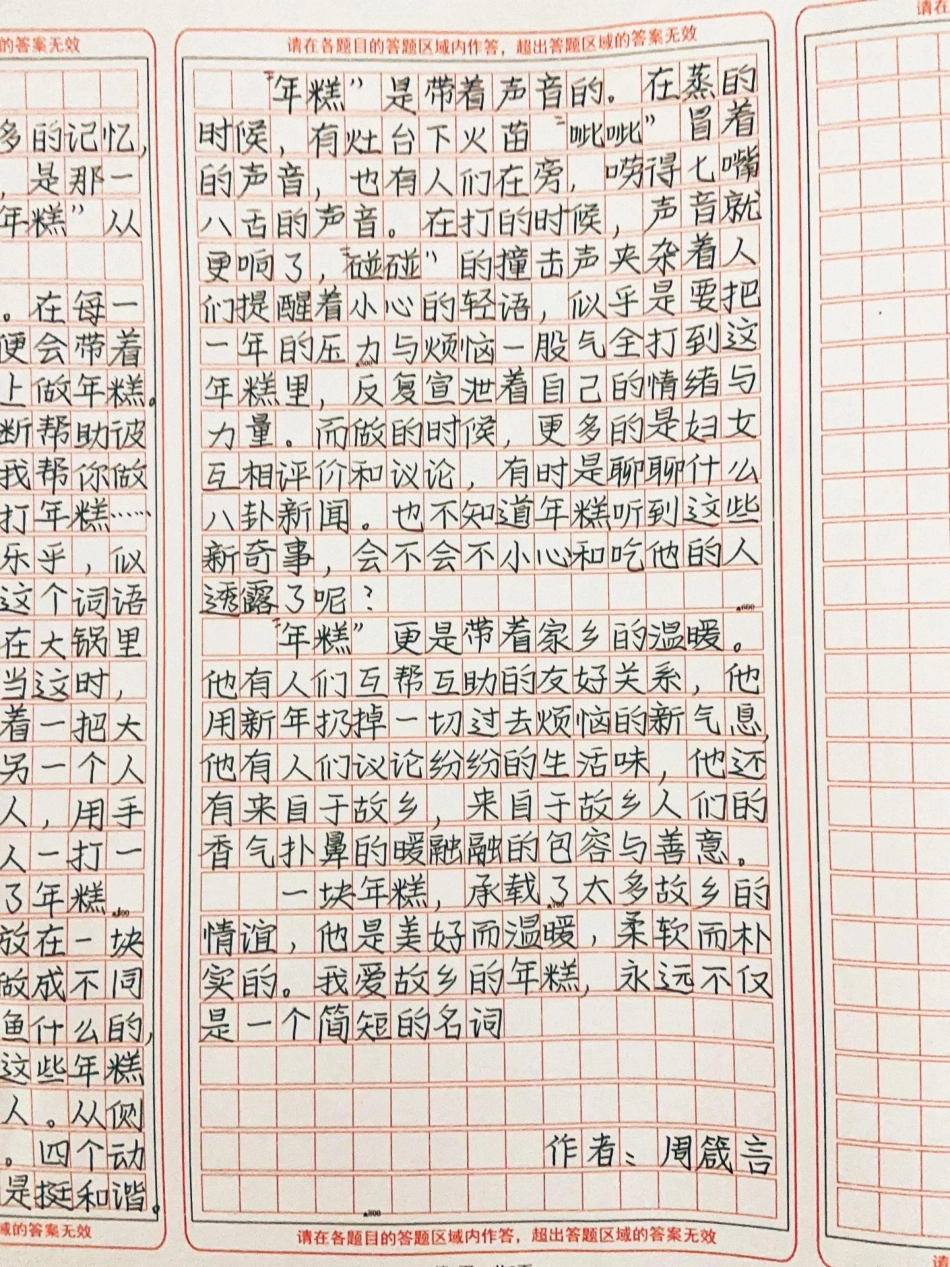 的答案无效
多的记忆,
，是那一
年糕”从
。在每一
便会带着
上做年糕。
断帮助彼
我帮你做
打年糕……
乐乎，似
这个词语
在大锅里
当这时，
着一把大
另一个人
人，用手
人一打一
了年糕
放在一块
做成不同
鱼什么的,
这些年糕
人。从侧
。四个动
是挺和谐。
域的答案无效
请在各题目的答题区域内作答，超出答题区域的答案无效
“年糕”是带着声音的。在蒸的
时候，有灶台下火苗“呲呲”冒着
的声音，也有人们在旁，唠得七嘴
八舌的声音。在打的时候，声音就
更响了，“碰碰”的撞击声夹杂着人
们提醒着小心的轻语，似乎是要把
一年的压力与烦恼一股气全打到这
年糕里，反复宣泄着自己的情绪与
力量。而做的时候，更多的是妇女
互相评价和议论，有时是聊聊什么
八卦新闻。也不知道年糕听到这些
新奇事，会不会不小心和吃他的人
透露了呢？
▲600
“年糕”更是带着家乡的温暖。
他有人们互帮互助的友好关系，他
用新年扔掉一切过去烦恼的新气息,
他有人们议论纷纷的生活味，他还
有来自于故乡，来自于故乡人们的
香气扑鼻的暖融融的包容与善意。
一块年糕，承载了太多故乡的
情谊，他是美好而温暖，柔软而朴
实的。我爱故乡的年糕，永远不仅
是一个简短的名词
作者：周箴言
▲800
请在各题目的答题区域内作答，超出答题区域的答案无效
请在